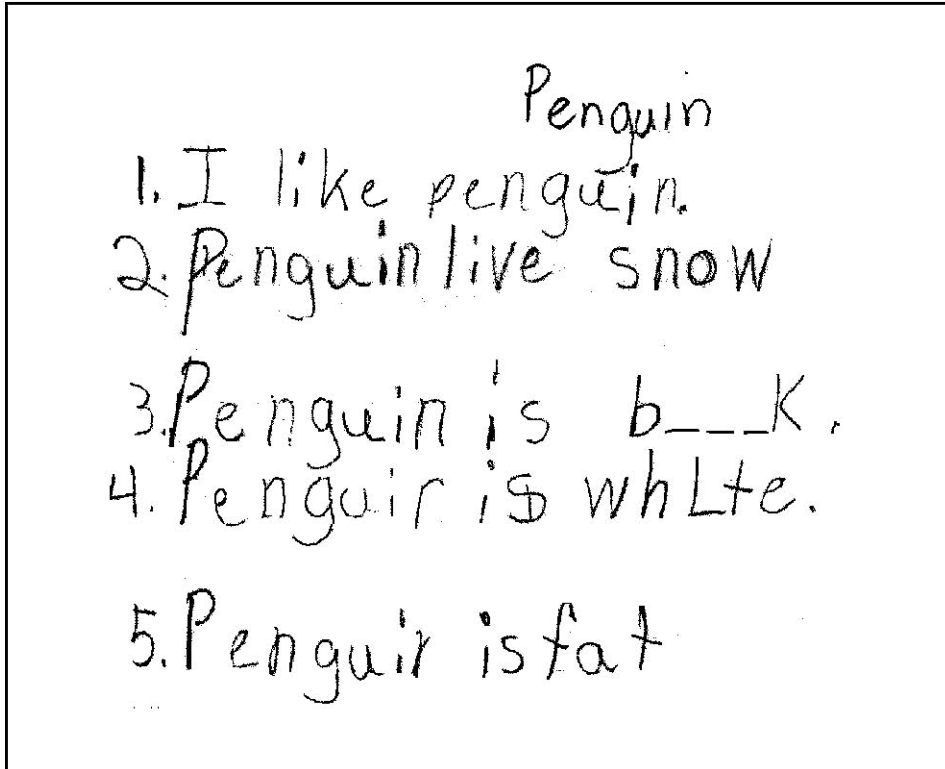 Penguin
1. I like penguin.
2. Penguin live snow
3. Penguin is b___k.
4. Penguin is white.
5. Penguin is fat